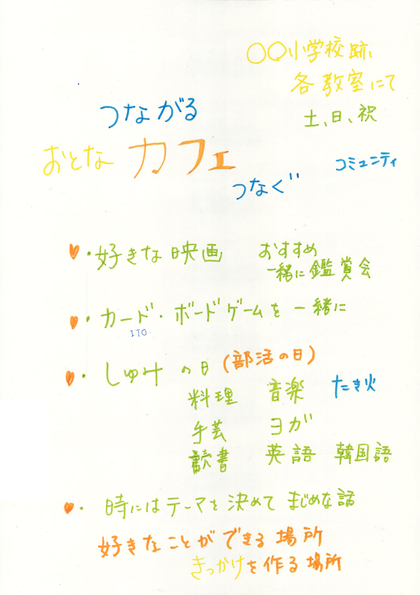 〇〇小学校跡
各教室にて
土、日、祝
つながる
おとな カフェ
つなぐ
コミュニティ
・好きな映画 おすすめ
一緒に鑑賞会
・カード・ボードゲームを一緒に
170
・しゅみの日(部活の日)
料理 音楽 たき火
手芸 ヨガ
読書 英語 韓国語
・時にはテーマを決めてまじめな話
好きなことができる場所
きっかけを作る場所